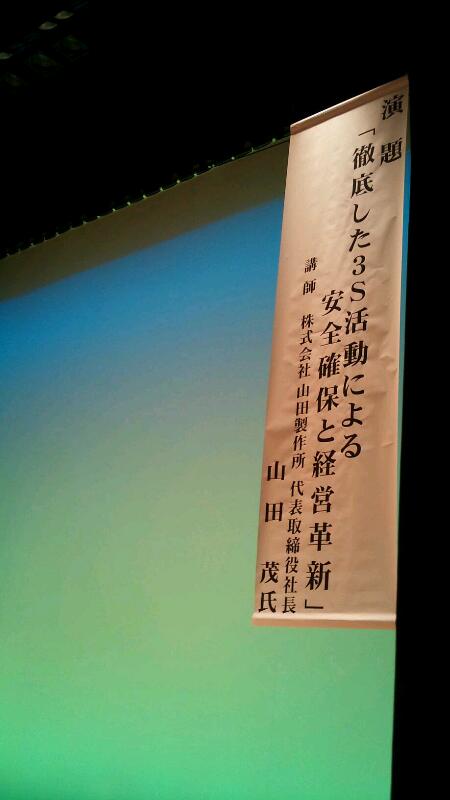 演題
「徹底した3S活動による
安全確保と経営革新」
講師 株式会社山田製作所 代表取締役社長
山田 茂氏